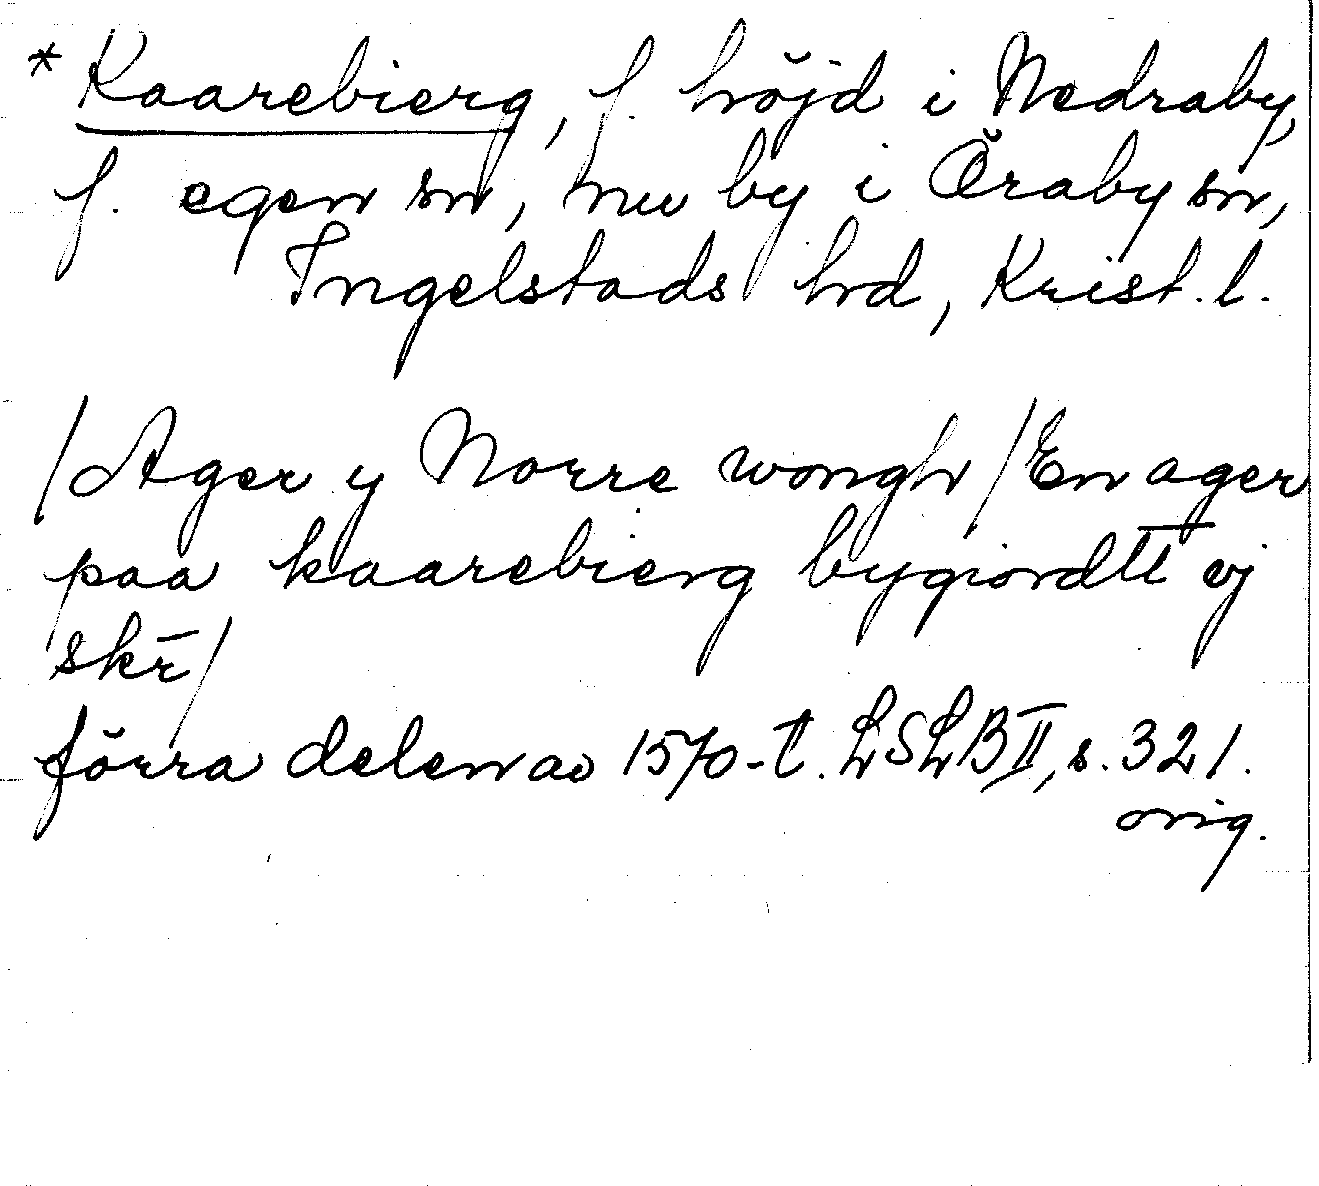 * Kaarebierg, f. höjd i Nedraby,
f. egen sn, nu by i Öraby sn,
Ingelstads hd, Krist. l.
/Ager y Norre wongh/En ager
paa kaarebierg bygiordtt ij
skr̄/
förra delen av 1570-t. LSLB II, s. 321.
orig.